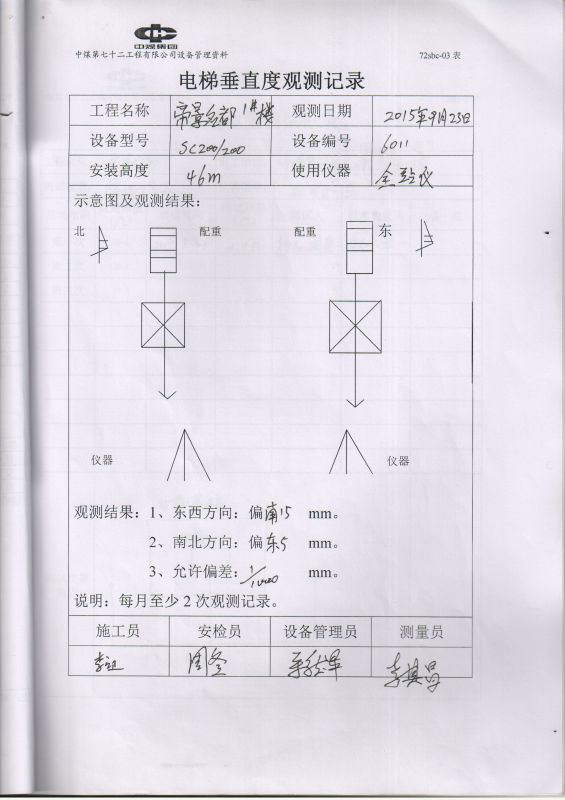 中煤集团
中煤第七十二工程有限公司设备管理资料 72sbc-03 表
电梯垂直度观测记录
工程名称 帝景名郡1#楼 观测日期 2015年9月23日
设备型号 SC200/200 设备编号 6011
安装高度 46m 使用仪器 全站仪
示意图及观测结果：
北 配重 配重 东
仪器 仪器
观测结果：1、东西方向：偏南15 mm。
2、南北方向：偏东5 mm。
3、允许偏差：1/1000 mm。
说明：每月至少2次观测记录。
施工员 安检员 设备管理员 测量员